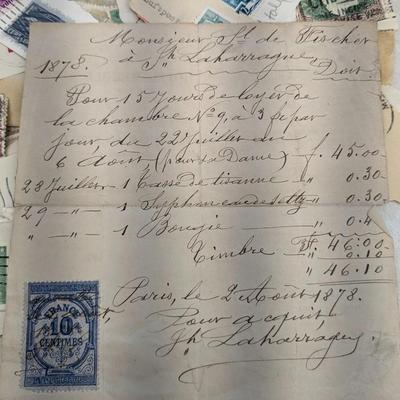 Monsieur de Fischer
1878. à Jh Laharragne Doit
Pour 15 Jours de loyer de
la chambre No 9, à 3 f par
jour, du 22 Juillet au
6 Aout (pour sa Dame) f. 45.00
28 Juillet 1 Tasse de tisanne " 0.30
29 — " — 1 Syphon eau de seltz " 0.30
" — " — 1 Bougie " 0.4
f. 46.00
Timbre " 0.10
" 46.10
Paris, le 2 Août 1878.
Pour acquit
Jh Laharragne
FRANCE
10
CENTIMES